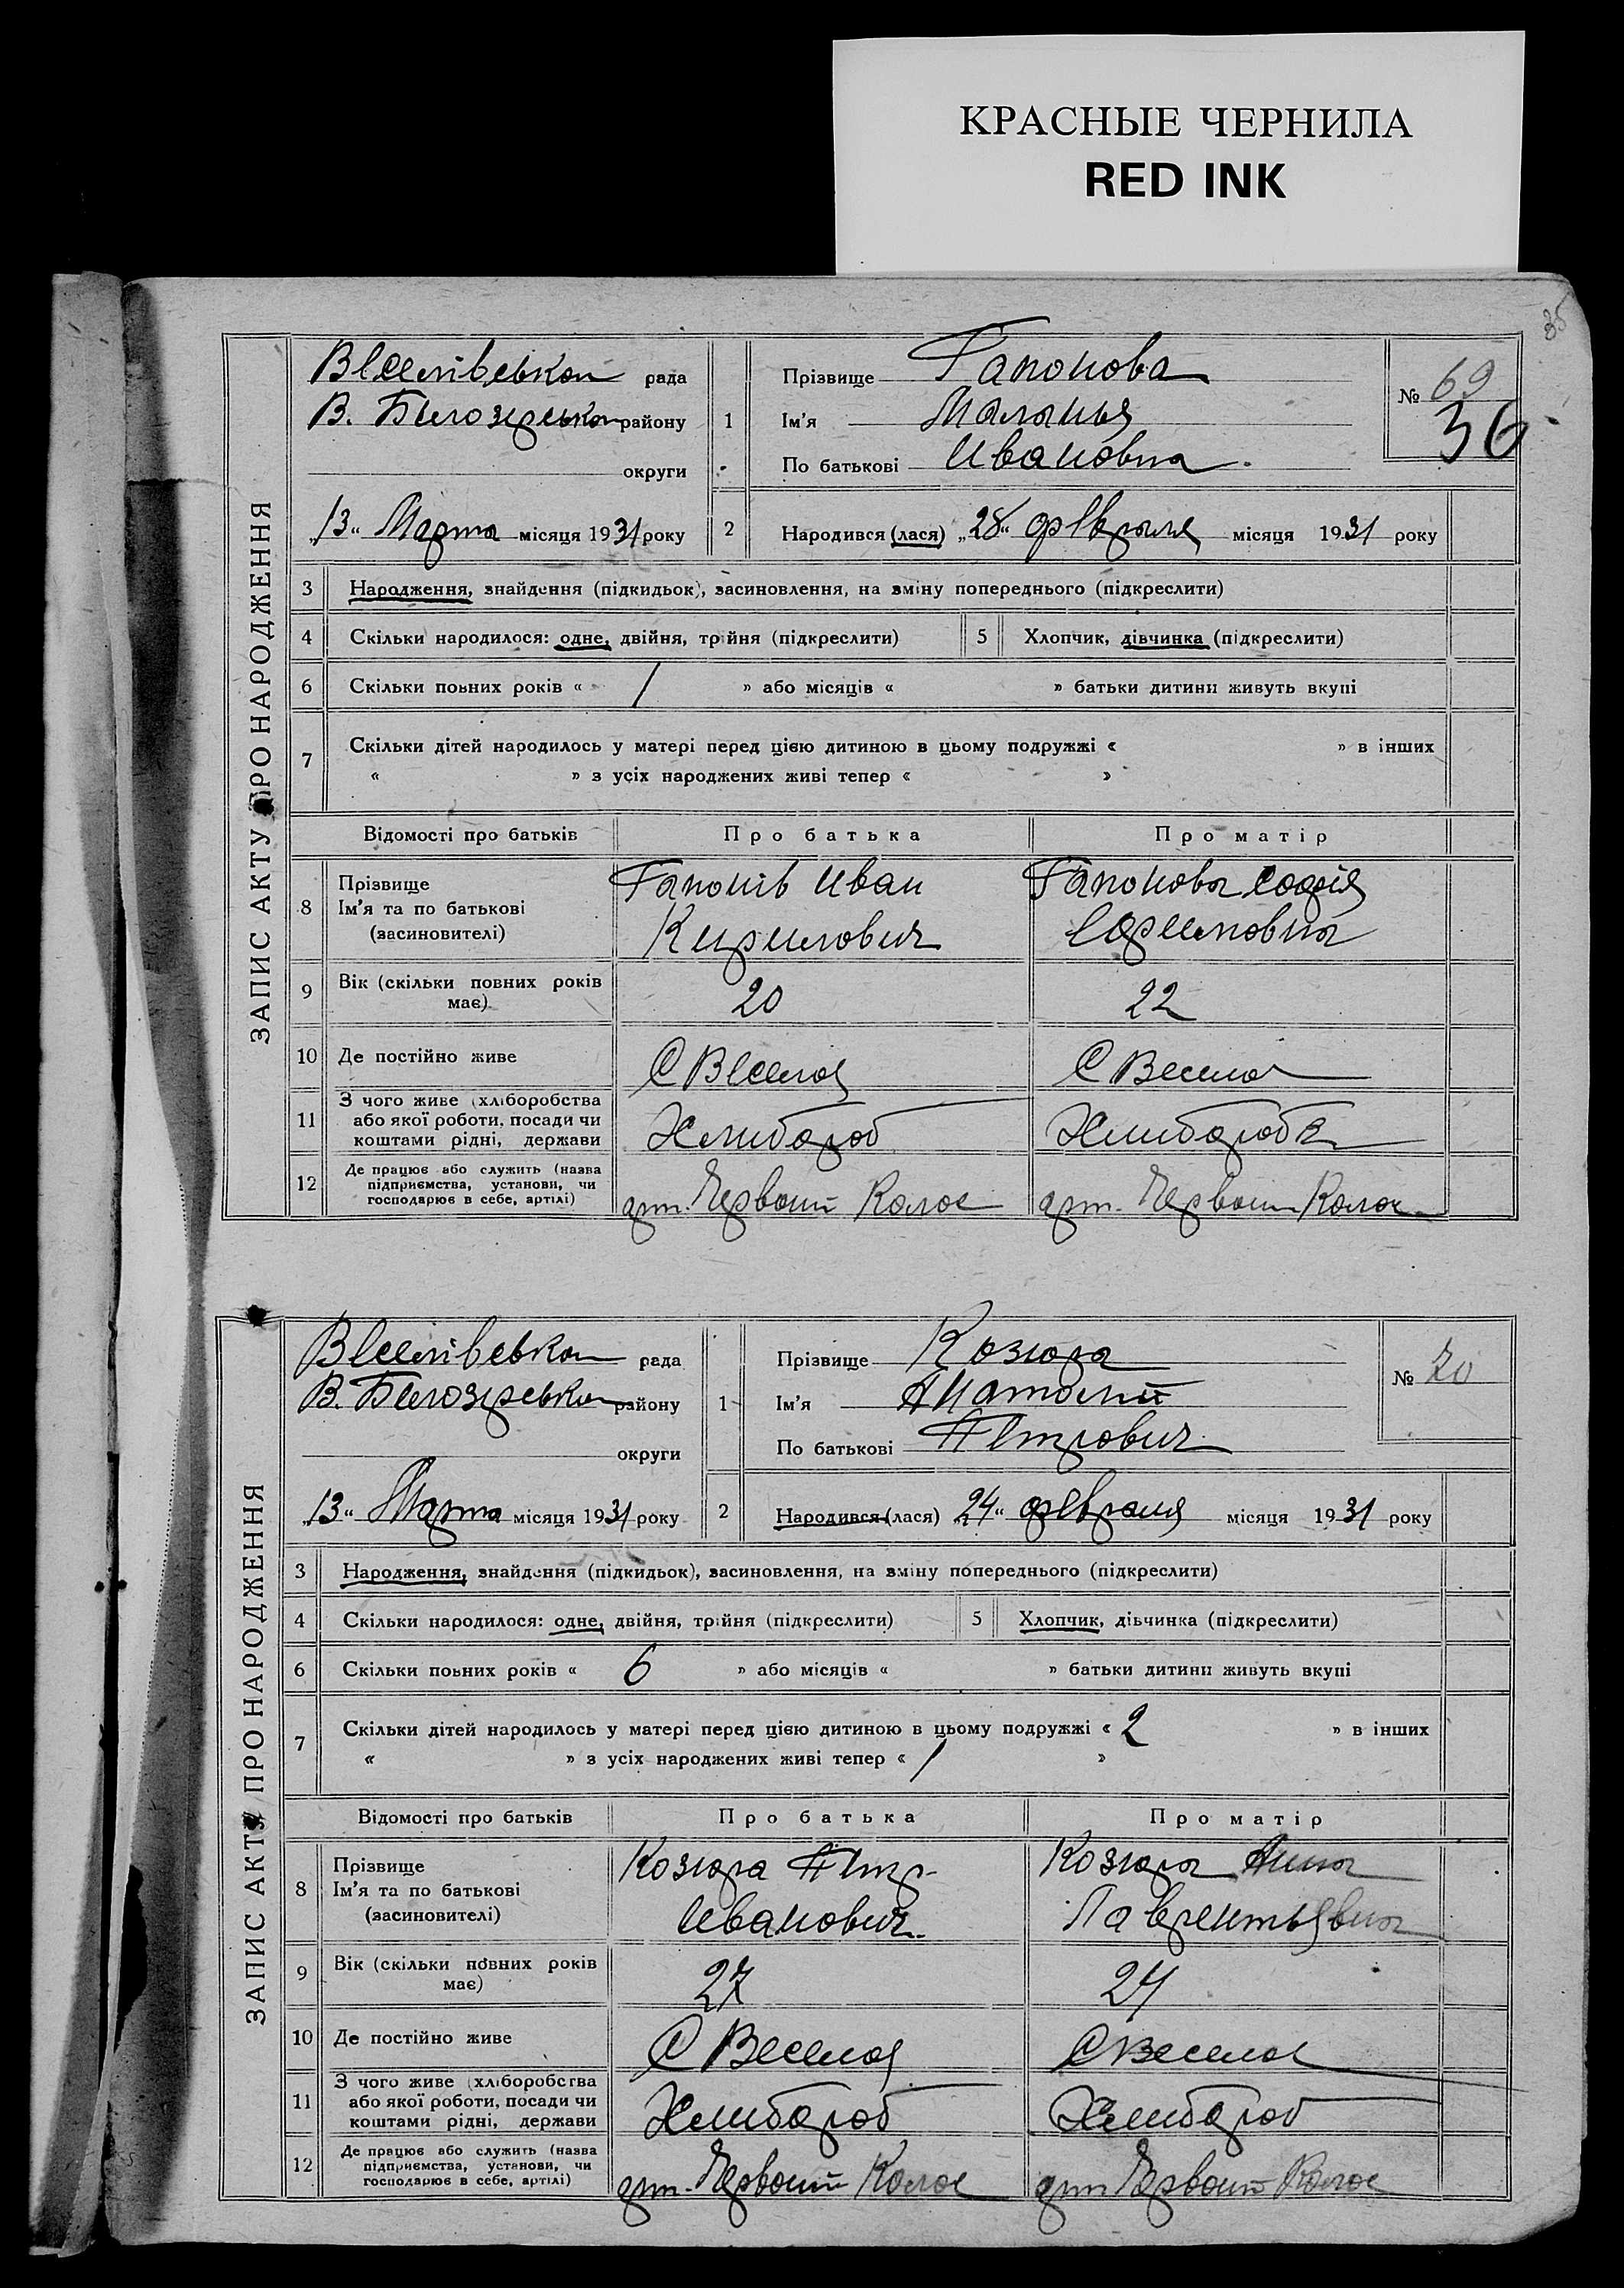 КРАСНЫЕ ЧЕРНИЛА
RED INK
35
ЗАПИС АКТУ ПРО НАРОДЖЕННЯ
Веселівської рада
В. Білозерської району
округи
„13“ Марта місяця 1931 року
1 Прізвище Гапонова
Ім'я Маланья
По батькові Ивановна
№ 69
36
2 Народився (лася) „28“ февраля місяця 1931 року
3 Народження, знайдення (підкидьок), засиновлення, на зміну попереднього (підкреслити)
4 Скільки народилося: одне, двійня, трійня (підкреслити) 5 Хлопчик, дівчинка (підкреслити)
6 Скільки повних років « 1 » або місяців « » батьки дитини живуть вкупі
7 Скільки дітей народилось у матері перед цією дитиною в цьому подружжі « » в інших
« » з усіх народжених живі тепер « »
Відомості про батьків Про батька Про матір
8 Прізвище Ім'я та по батькові (засновителі) Гапонів Иван Кирилович Гапонова Софія
9 Вік (скільки повних років має) 20 22
10 Де постійно живе С Весела С Весела
11 З чого живе (хліборобства або якої роботи, посади чи коштами рідні, держави Хлибороб Хлибороб
12 Де працює або служить (назва підприємства, установи, чи господарює в себе, артілі) арт. Червоний Колос арт. Червоний Колос
ЗАПИС АКТУ ПРО НАРОДЖЕННЯ
Веселівської рада
В. Білозерської району
округи
„13“ Марта місяця 1931 року
1 Прізвище Козюра
Ім'я Анатолій
По батькові Петрович
№ 70
2 Народився (лася) „24“ февраля місяця 1931 року
3 Народження, знайдення (підкидьок), засиновлення, на зміну попереднього (підкреслити)
4 Скільки народилося: одне, двійня, трійня (підкреслити) 5 Хлопчик, дівчинка (підкреслити)
6 Скільки повних років « 6 » або місяців « » батьки дитини живуть вкупі
7 Скільки дітей народилось у матері перед цією дитиною в цьому подружжі « 2 » в інших
« » з усіх народжених живі тепер « 1 »
Відомості про батьків Про батька Про матір
8 Прізвище Ім'я та по батькові (засиновителі) Козюра Петр Иванович Козюра Анна Лаврентьевна
9 Вік (скільки повних років має) 27 24
10 Де постійно живе С Весела С Весела
11 З чого живе (хліборобства або якої роботи, посади чи коштами рідні, держави Хлибороб Хлибороб
12 Де працює або служить (назва підприємства, установи, чи господарює в себе, артілі) арт. Червоний Колос арт Червоний Колос